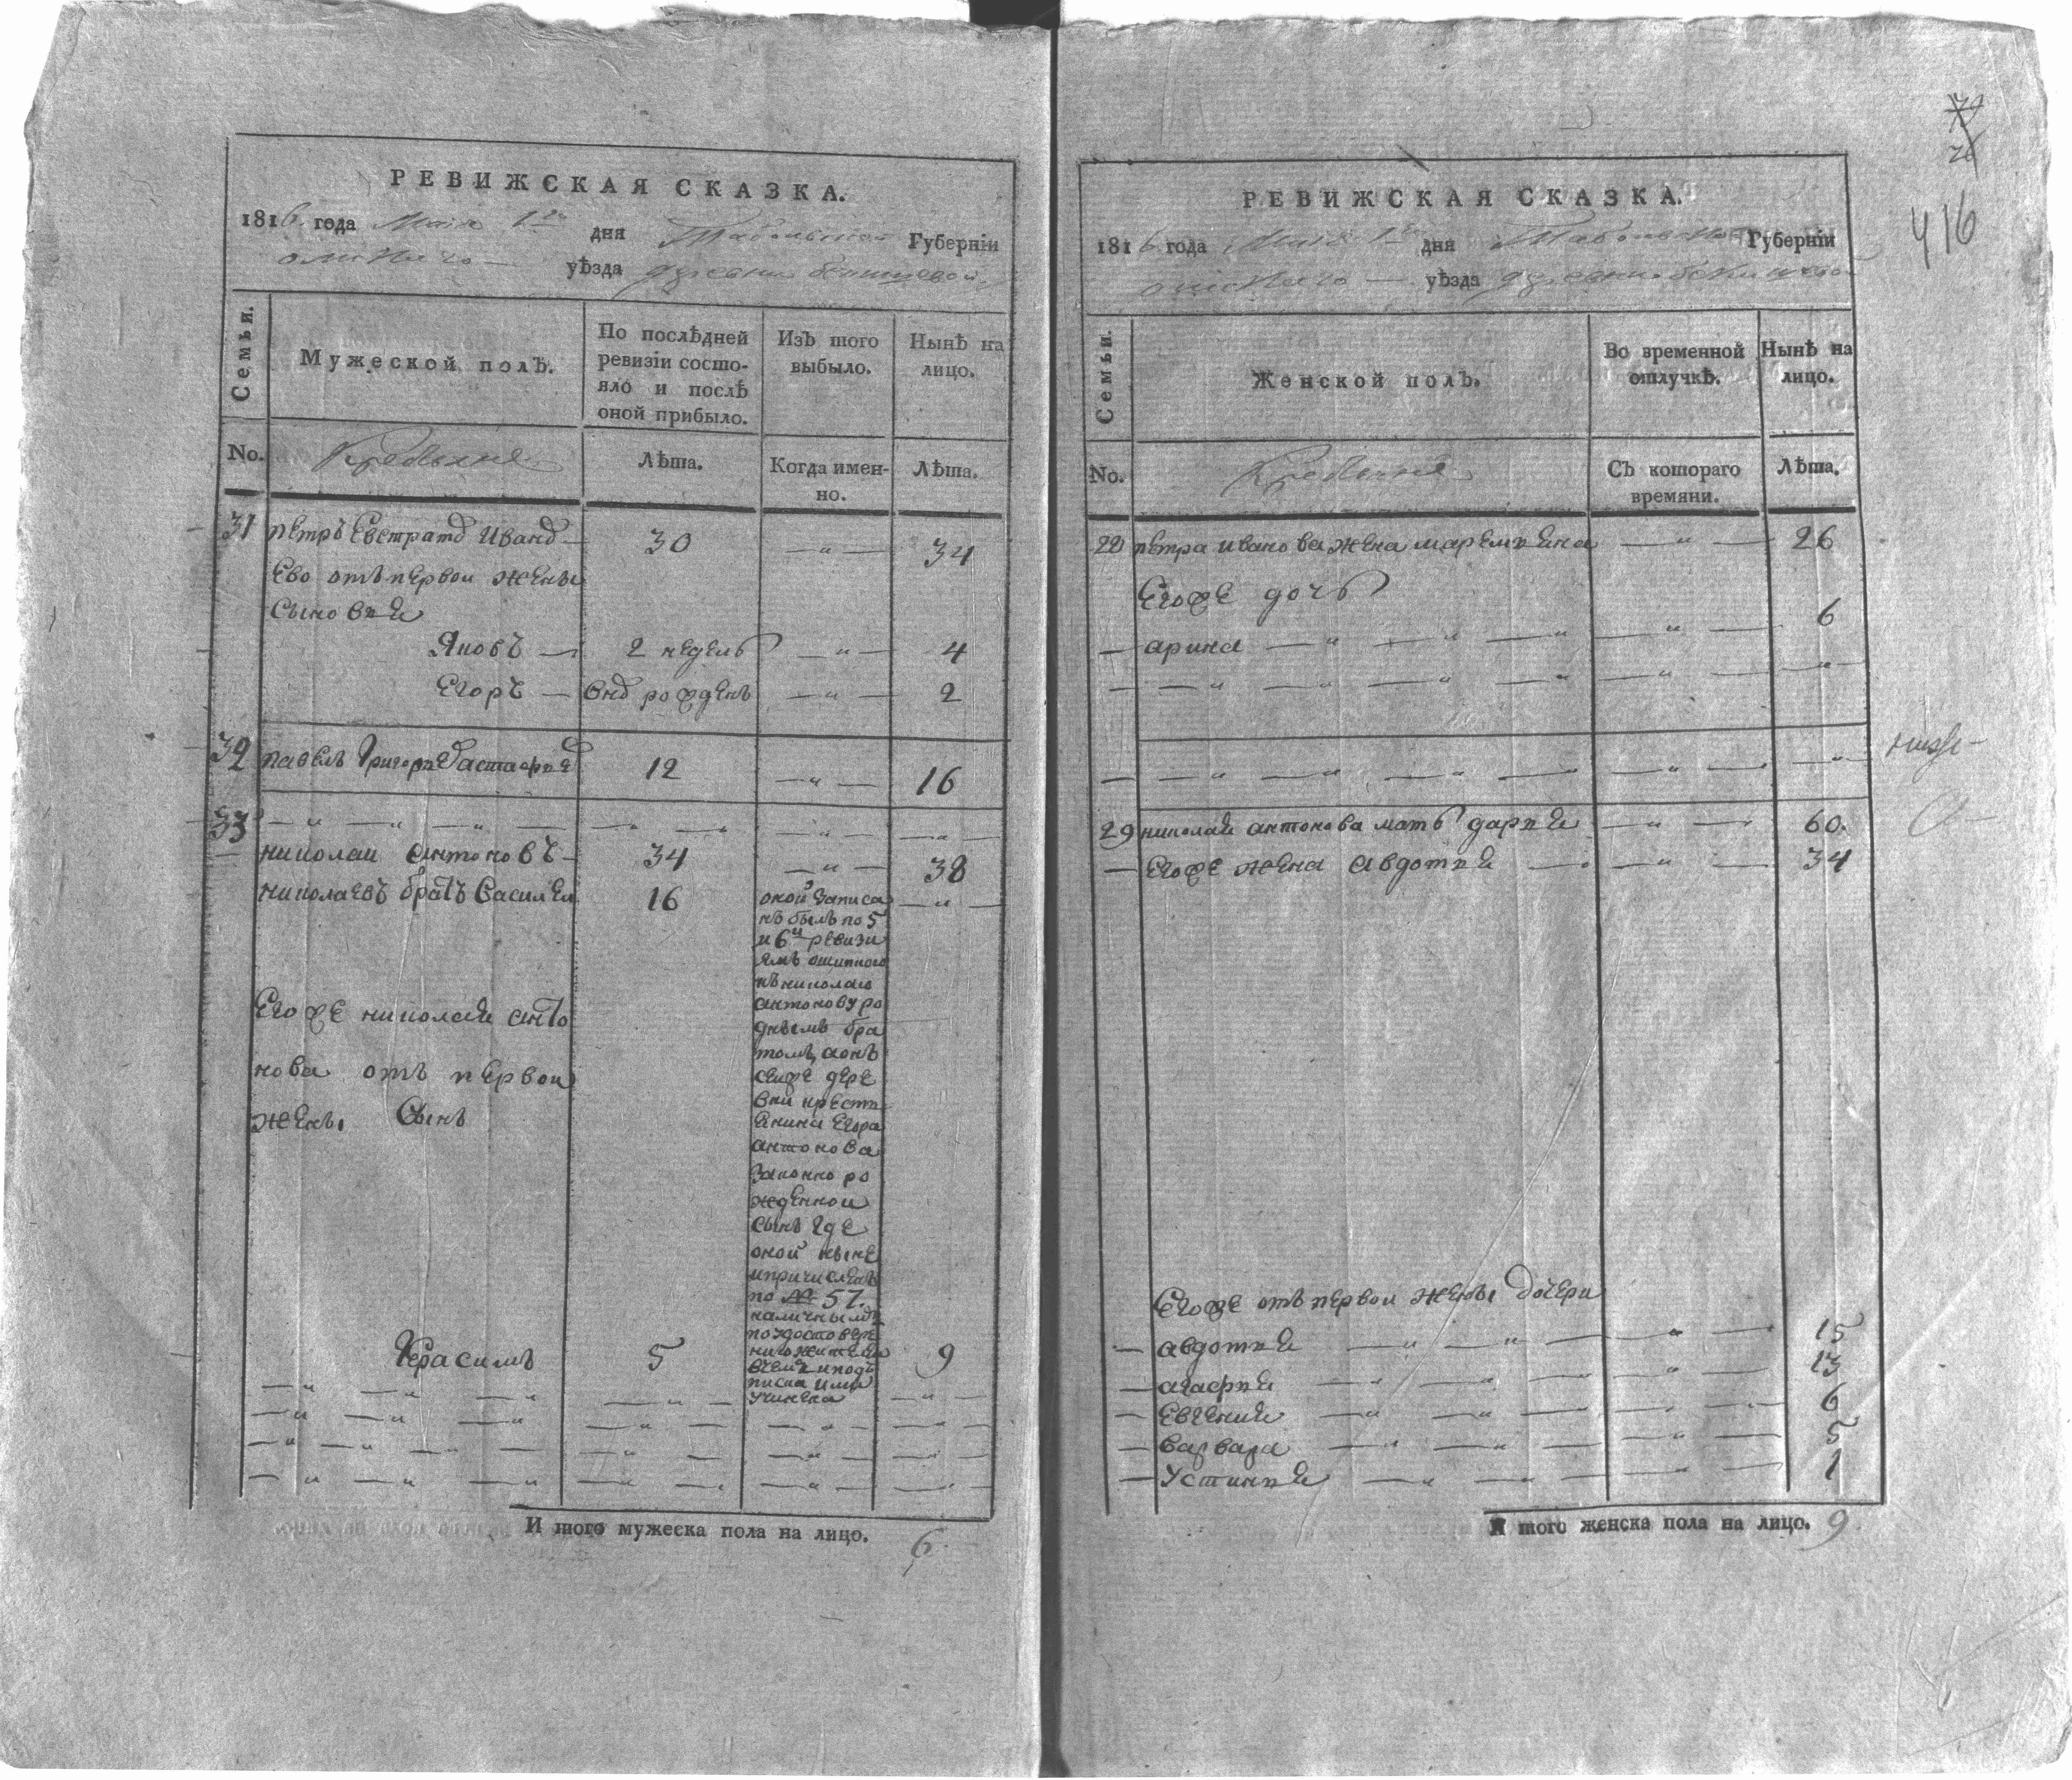 РЕВИЖСКАЯ СКАЗКА.
1816. года Маія 1го дня Табольской Губерніи
омскаго уѣзда деревни
Семьи.
Мужеской полъ.
По послѣдней ревизіи состояло и послѣ оной прибыло.
Изъ того выбыло.
Нынѣ на лицо.
No.
Лѣта.
Когда именно.
Лѣта.
31 петръ Евстратъ Иванъ 30 — „ — 34
Ево отъ первои жены
Сыновья
Яковъ 2 недель — „ — 4
Егоръ внъ рожденъ — „ — 2
32 павелъ 12 — „ — 16
33
николаи антоновъ 34 — „ — 38
николаевъ братъ Василеи 16 — „ —
оной записа
нъ былъ по 5
и 6й ревизи
ямъ
къ николаю
антонову ро
днымъ бра
томъ, аонъ
сеиже дере
вни крестья
янина Егора
антонова
законно ро
жденнои
сынъ где
оной ныне
ипричисленъ
по № 57.
Егоже николая анто
нова отъ первои
жены Сынъ
Керасимъ 5 9
учинена
И того мужеска пола на лицо. 6.
РЕВИЖСКАЯ СКАЗКА.
1816 года Маія 1го дня Табольской Губерніи
омскаго уѣзда деревни
Семьи.
Женской полъ.
Во временной отлучкѣ.
Нынѣ на лицо.
No.
Съ котораго времяни.
Лѣта.
28 петра иванова жена маремьяна — „ — 26
Егоже дочь
арина — „ — 6
29 николая антонова мать дарья — „ — 60.
Егоже жена авдотья — „ — 34
Егоже отъ первои жены дочери
авдотья 15
агафья 13
Евгения 6
варвара 5
Устинья 1
И того женска пола на лицо. 9
416